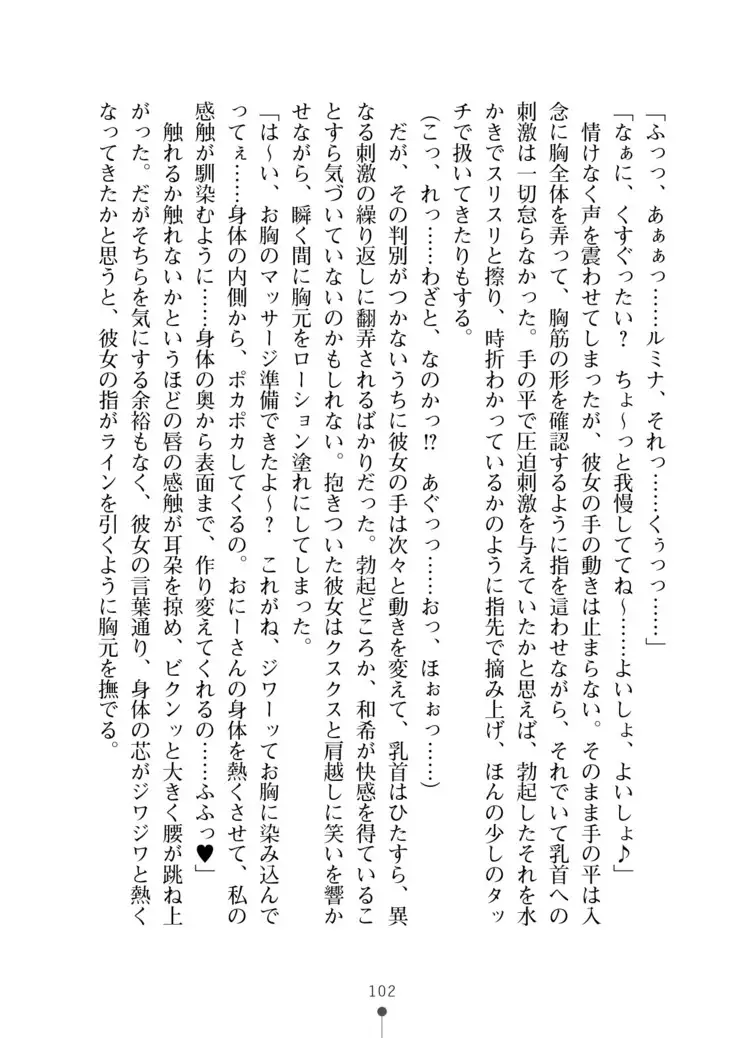 「ふっっ、あぁぁっ……ルミナ、それっ……くぅっっ……」
「なぁに、くすぐったい？　ちょ～っと我慢しててね～……よいしょ、よいしょ♪」
情けなく声を震わせてしまったが、彼女の手の動きは止まらない。そのまま手の平は入
念に胸全体を弄って、胸筋の形を確認するように指を這わせながら、それでいて乳首への
刺激は一切怠らなかった。手の平で圧迫刺激を与えていたかと思えば、勃起したそれを水
かきでスリスリと擦り、時折わかっているかのように指先で摘み上げ、ほんの少しのタッ
チで扱いてきたりもする。
（こっ、れっ……わざと、なのかっ!?　あぐっっ……おっ、ほぉぉっ……）
だが、その判別がつかないうちに彼女の手は次々と動きを変えて、乳首はひたすら、異
なる刺激の繰り返しに翻弄されるばかりだった。勃起どころか、和希が快感を得ているこ
とすら気づいていないのかもしれない。抱きついた彼女はクスクスと肩越しに笑いを響か
せながら、瞬く間に胸元をローション塗れにしてしまった。
「は～い、お胸のマッサージ準備できたよ～？　これがね、ジワーッてお胸に染み込んで
ってぇ……身体の内側から、ポカポカしてくるの。おにーさんの身体を熱くさせて、私の
感触が馴染むように……身体の奥から表面まで、作り変えてくれるの……ふふっ♥」
触れるか触れないかというほどの唇の感触が耳朶を掠め、ビクンッと大きく腰が跳ね上
がった。だがそちらを気にする余裕もなく、彼女の言葉通り、身体の芯がジワジワと熱く
なってきたかと思うと、彼女の指がラインを引くように胸元を撫でる。
102